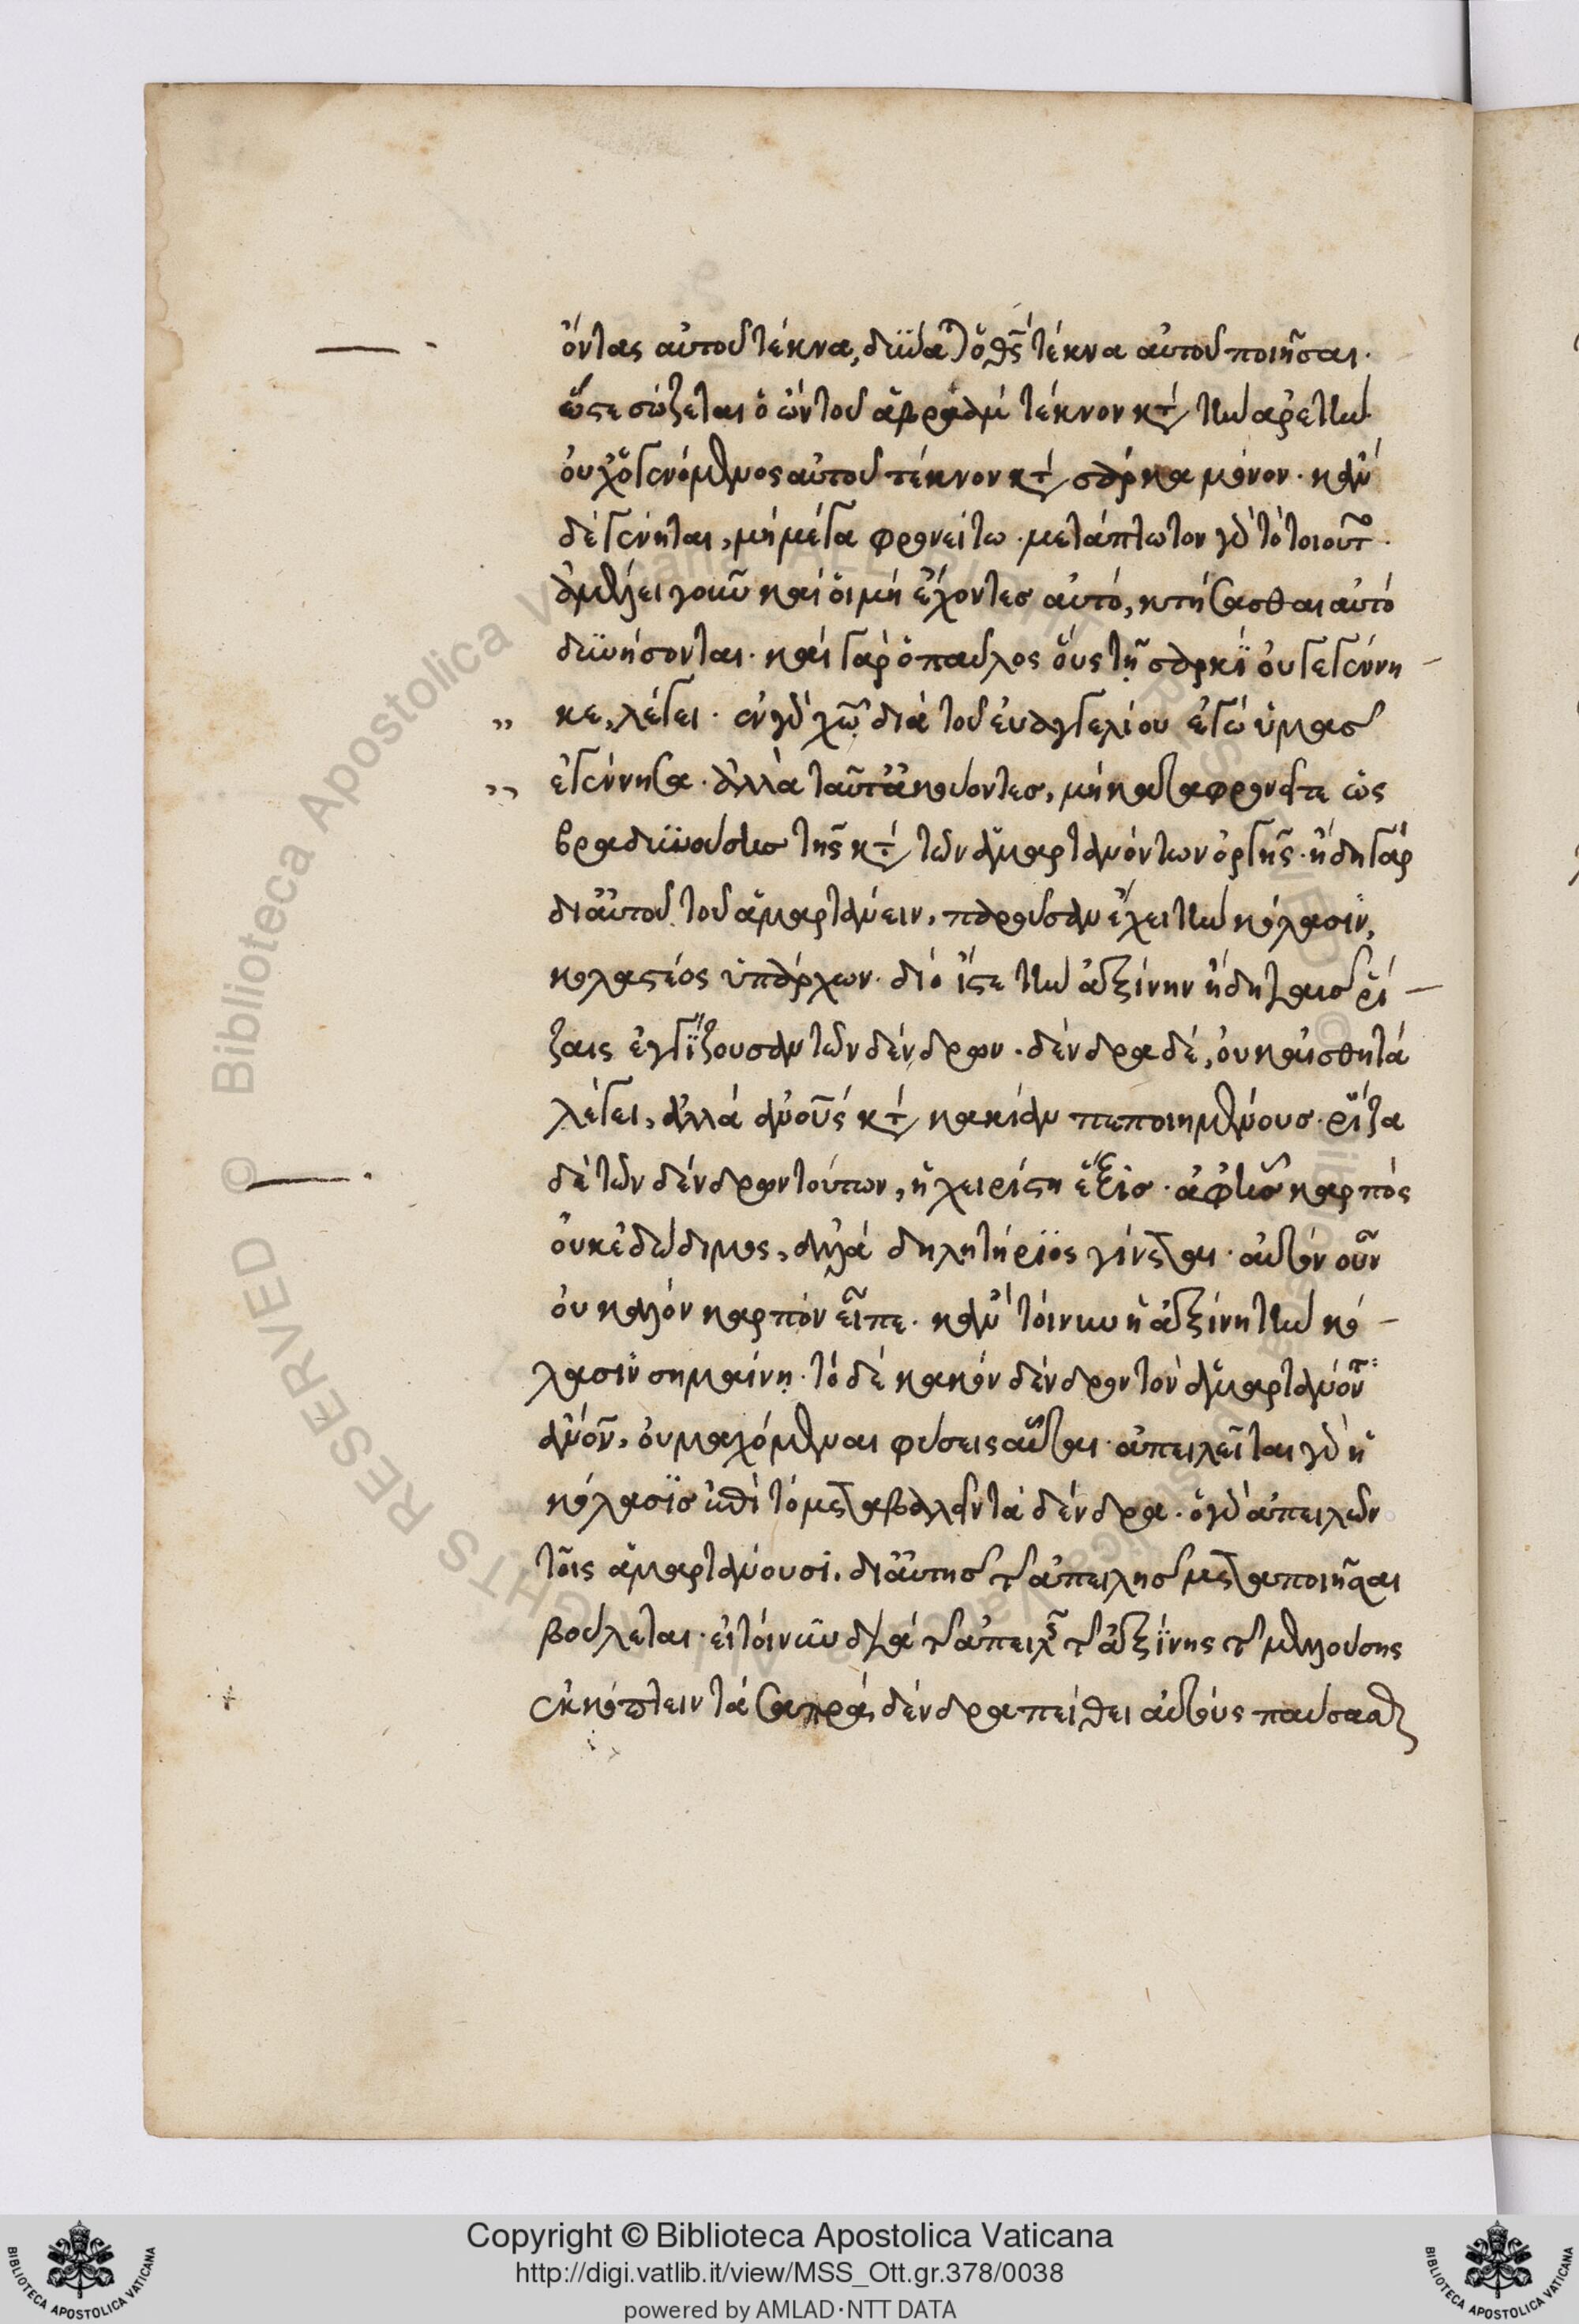 ὄντας αὐτοῦ τέκνα, δύνατ(αι) ὁ θ(εὸ)ς τέκνα αὐτοῦ ποιῆσαι.
ὥστε σώζεται ὁ ὢν τοῦ ἁβραὰμ τέκνον κατὰ τὴν ἀρετήν.
οὐχ ὁ γενόμενος αὐτοῦ τέκνον κατὰ σάρκα μόνον. κἂν
δὲ γένηται, μὴ μέγα φρονείτω. μετάπτωτον γὰρ τὸ τοιοῦτο.
ἀμέλει γοῦν καὶ οἱ μὴ ἔχοντες αὐτό, κτήσασθαι αὐτὸ
δυνήσονται. καὶ γὰρ ὁ παῦλος οὓς τῇ σαρκὶ οὐ γεγέννη
κε, λέγει. ἐν γὰρ χῶ διὰ τοῦ εὐαγγελίου ἐγὼ ὑμᾶς
ἐγέννησα. ἀλλὰ ταῦτα ἀκούοντες, μὴ καταφρονεῖτε ὡς
βραδυνούσης τῆς κατὰ τῶν ἁμαρτανόντων ὀργῆς. ἤδη γὰρ
δι' αὐτοῦ τοῦ ἁμαρτάνειν, παροῦσαν ἔχει τὴν κόλασιν,
κολαστέος ὑπάρχων. διὸ ἴστε τὴν ἀξίνην ἤδη ταῖς ῥί
ζαις ἐγγίζουσαν τῶν δένδρων. δένδρα δὲ, οὐκ αἰσθητὰ
λέγει, ἀλλὰ ἀνους κατὰ κακίαν πεποιημένους. ῥίζα
δὲ τῶν δένδρων τούτων, ἡ χειρίστη ἕξις. ἀφ' ἧς καρπὸς
οὐκ ἐδώδιμος, ἀλλὰ δηλητήριος γίνεται. αὐτὸν οὖν
οὐ καλὸν καρπὸν εἶπε. κἂν τοίνυν ἡ ἀξίνη τὴν κό
λασιν σημαίνη. τὸ δὲ κακὸν δένδρον τὸν ἁμαρτάνοντα
ἀνον, οὐ μαχόμεναι φύσεις αὗται. ἀπειλεῖται γὰρ ἡ
κόλασις ἐπὶ τὸ μεταβαλεῖν τὰ δένδρα. ὁ γὰρ ἀπειλῶν
τοῖς ἁμαρτάνουσι. δι' αὐτῆς τῆς ἀπειλῆς μεταποιῆσαι
βούλεται. εἰ τοίνυν διὰ τῆς ἀπειλῆς τῆς ἀξίνης τῆς μελλούσης
ἐκκόπτειν τὰ σαπρὰ δένδρα πείθει αὐτοὺς παύσασθαι
Copyright © Biblioteca Apostolica Vaticana
http://digi.vatlib.it/view/MSS_Ott.gr.378/0038
powered by AMLAD·NTT DATA